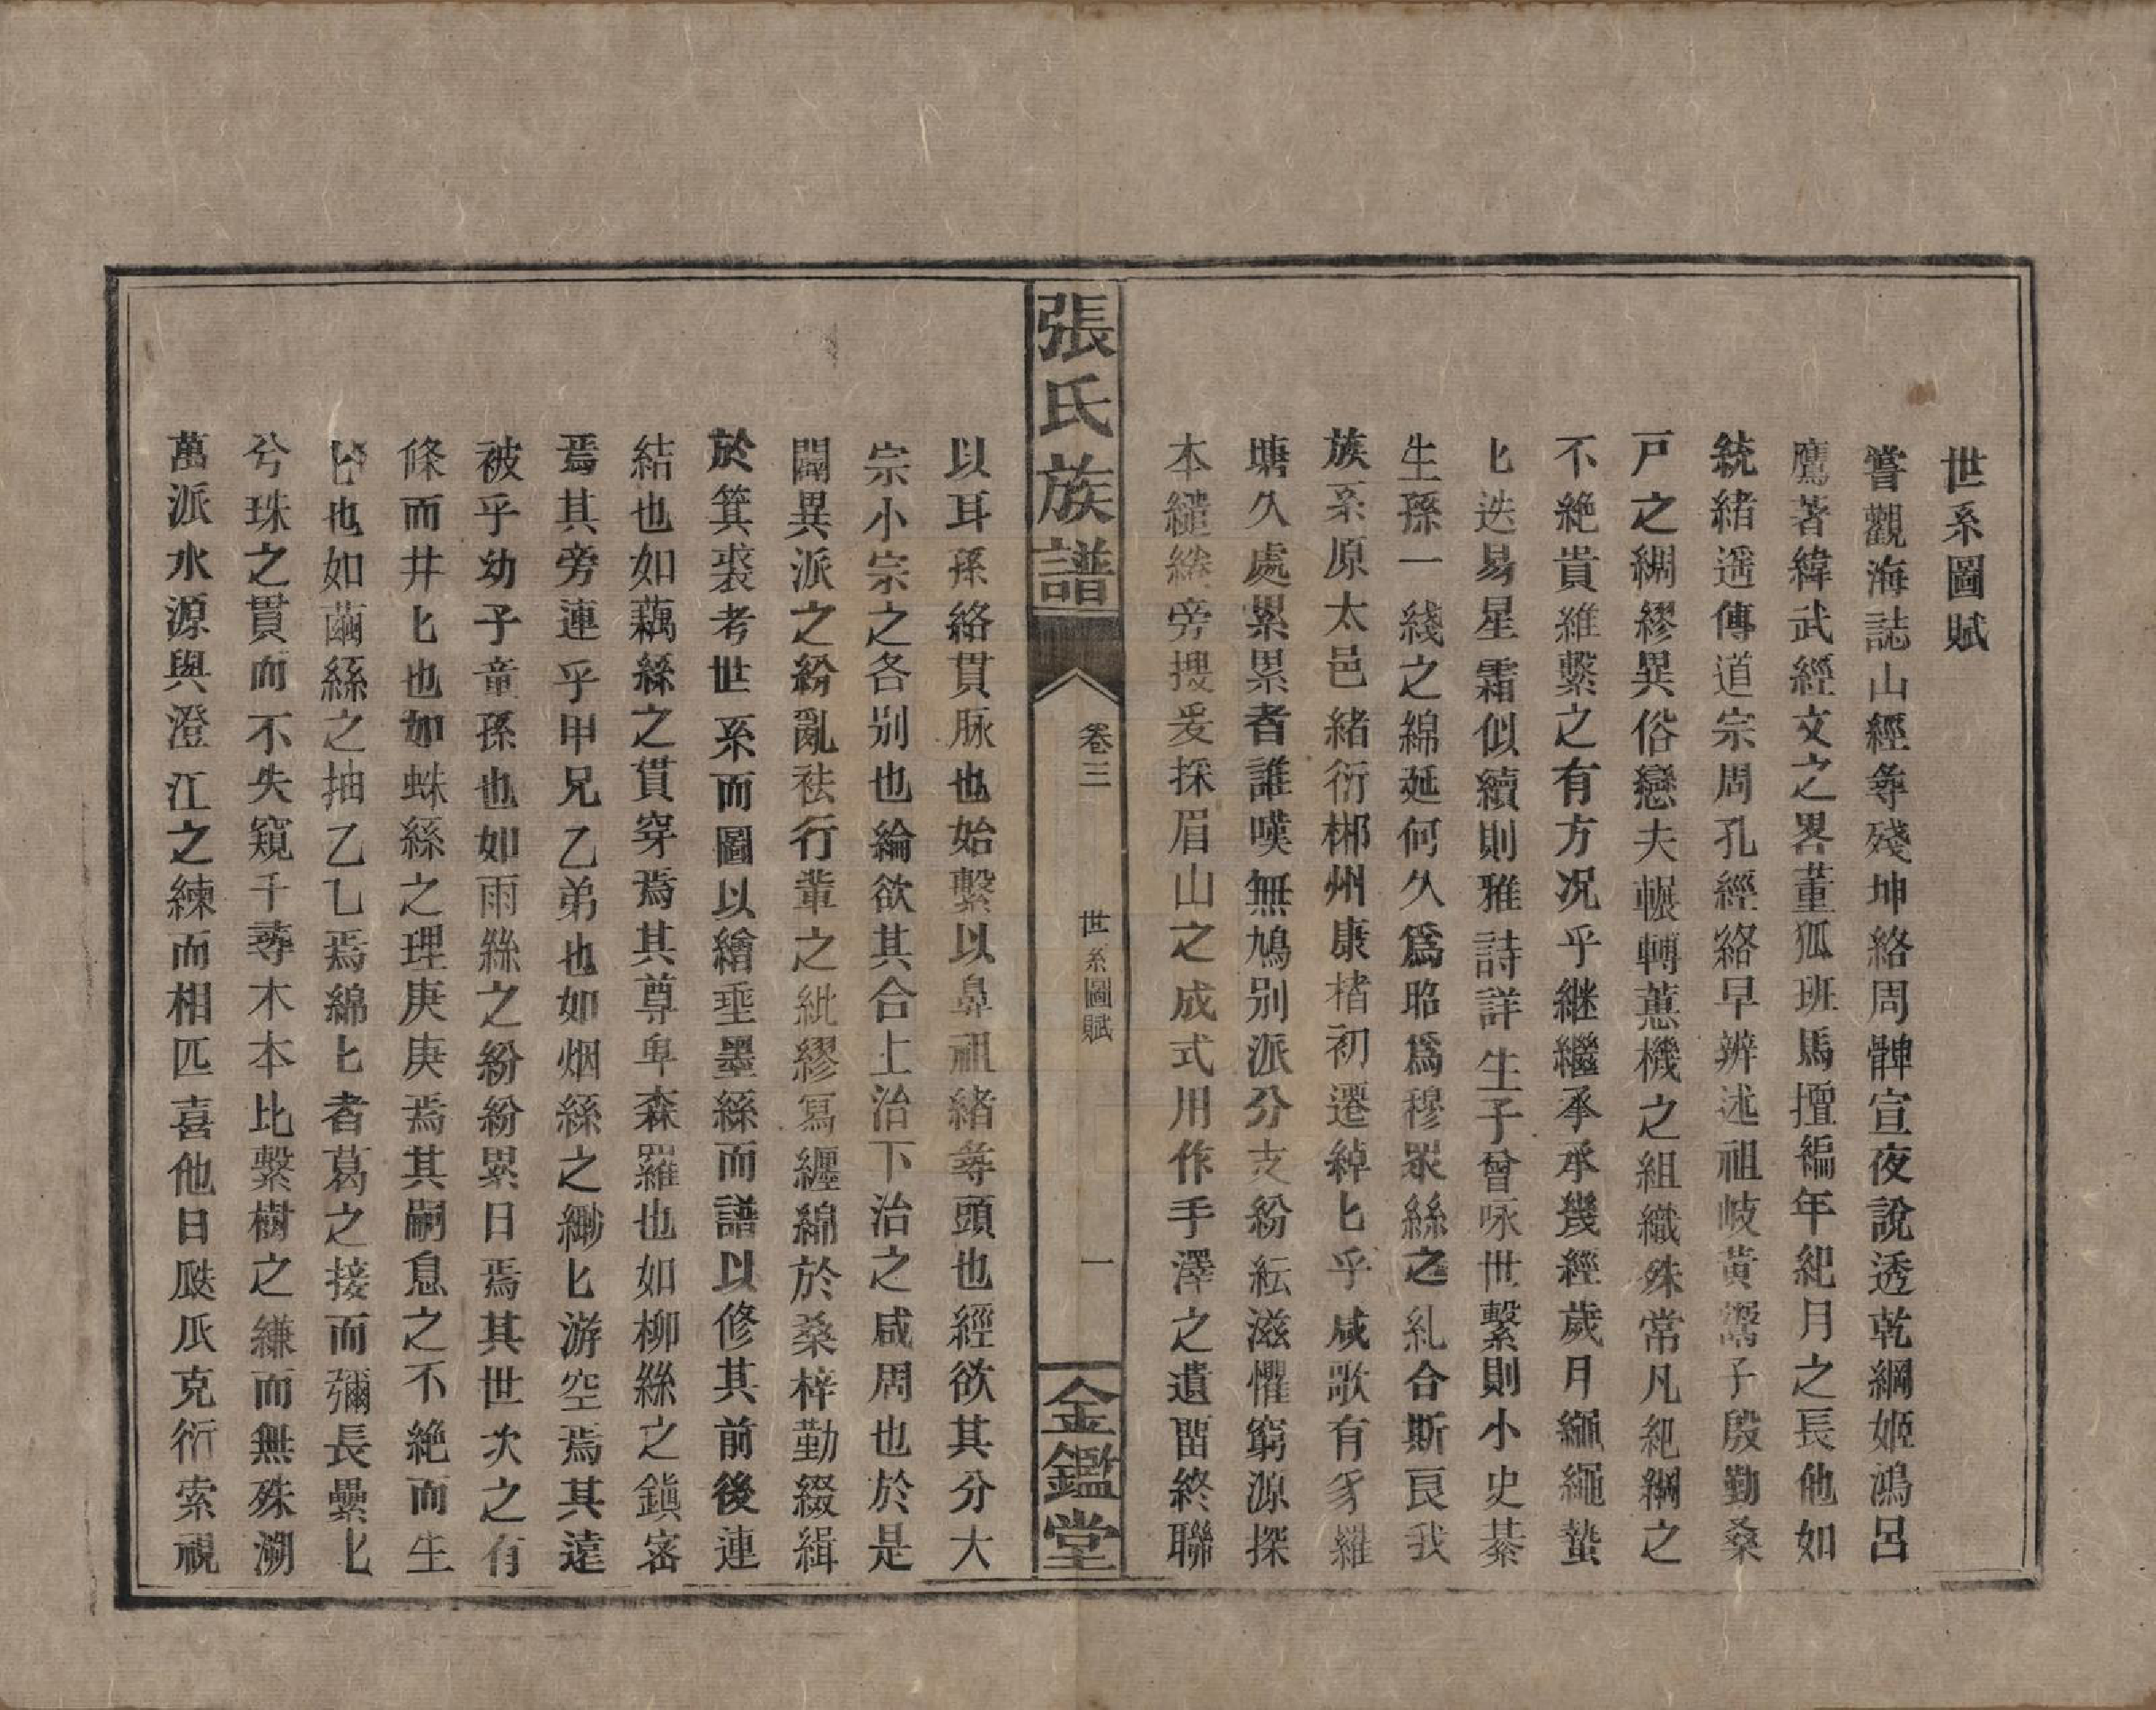 世系圖賦
嘗觀海誌山經尋殘坤絡周髀宣夜說透乾綱姬鴻呂
鷹著緯武經文之畧董狐班馬擅編年紀月之長他如
統緒遥傳道宗周孔經絡早辨述祖岐黄鄒子殷勤桑
戸之綢繆異俗戀夫輾轉蕙機之組織殊常凡紀綱之
不絶貴維繫之有方况乎継繼承承幾經歲月繩繩蟄
匕迭易星霜似續則雅詩詳生子曾咏世繫則小史綦
生孫一綫之綿延何久爲昭爲穆眾絲之糺合斯良我
族系原太邑緒衍郴州康楮初遷綽匕乎咸歌有豸羅
塘久處累累者誰嘆無鳩别派分支紛紜滋懼窮源探
本繾綣旁搜爰採眉山之成式用作手澤之遺畱終聯
張氏族譜
卷三
世系圖賦
一
金鑑堂
以耳孫絡貫脉也始繫以鼻祖緒尋頭也經欲其分大
宗小宗之各别也綸欲其合上治下治之咸周也於是
闢異派之紛亂祛行輩之紕繆冩纒綿於桑梓勤綴緝
於箕裘考世系而圖以繪垂墨絲而譜以修其前後連
結也如藕絲之貫穿焉其尊卑森羅也如柳絲之鎮宻
焉其旁連乎甲兄乙弟也如烟絲之緲匕游空焉其遠
被乎幼子童孫也如雨絲之紛紛累日焉其世次之有
條而井匕也如蛛絲之理庚庚焉其嗣息之不絶而生
匕也如繭絲之抽乙乙焉綿匕者葛之接而彌長纍匕
兮珠之貫而不失窺千尋木本比繫樹之縑而無殊溯
萬派水源與澄江之練而相匹喜他日瓞瓜克衍索視